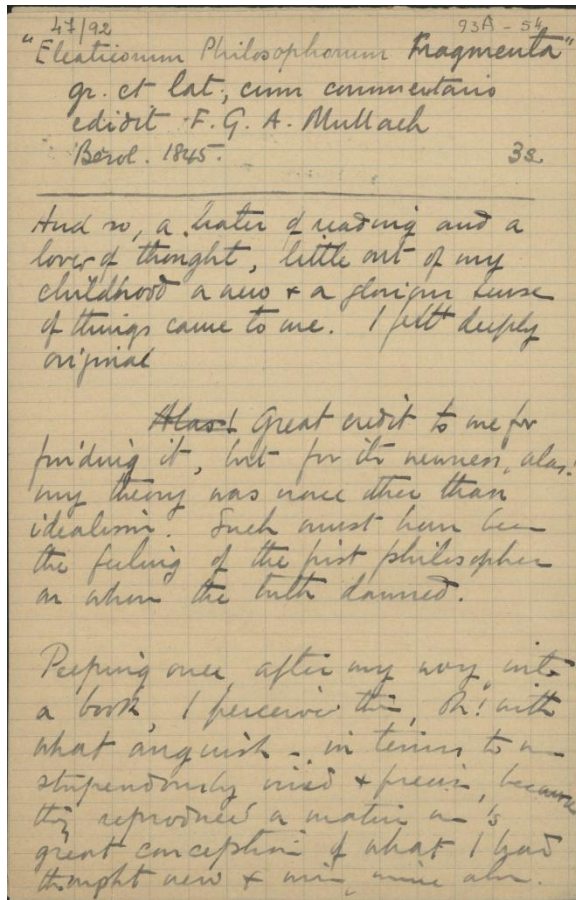 47/92 93A - 54
"Eleaticorum Philosophorum Fragmenta"
gr. et lat., cum commentario
edidit F. G. A. Mullach
Berol. 1845. 3s.
And so, a hater of reading and a
lover of thought, little out of my
childhood a new & a glorious sense
of things came to me. I felt deeply
original
Alas! Great credit to me for
finding it, but for its newness, alas!
my theory was none other than
idealism. Such must have been
the feeling of the first philosopher
on whom the truth dawned.
Peeping once, after my way, into
a book, I perceive this, Oh! with
what anguish - in terms to me
stupendously & precise, because
they reproduced a
great conception of what I had
thought new & mine, mine alone.